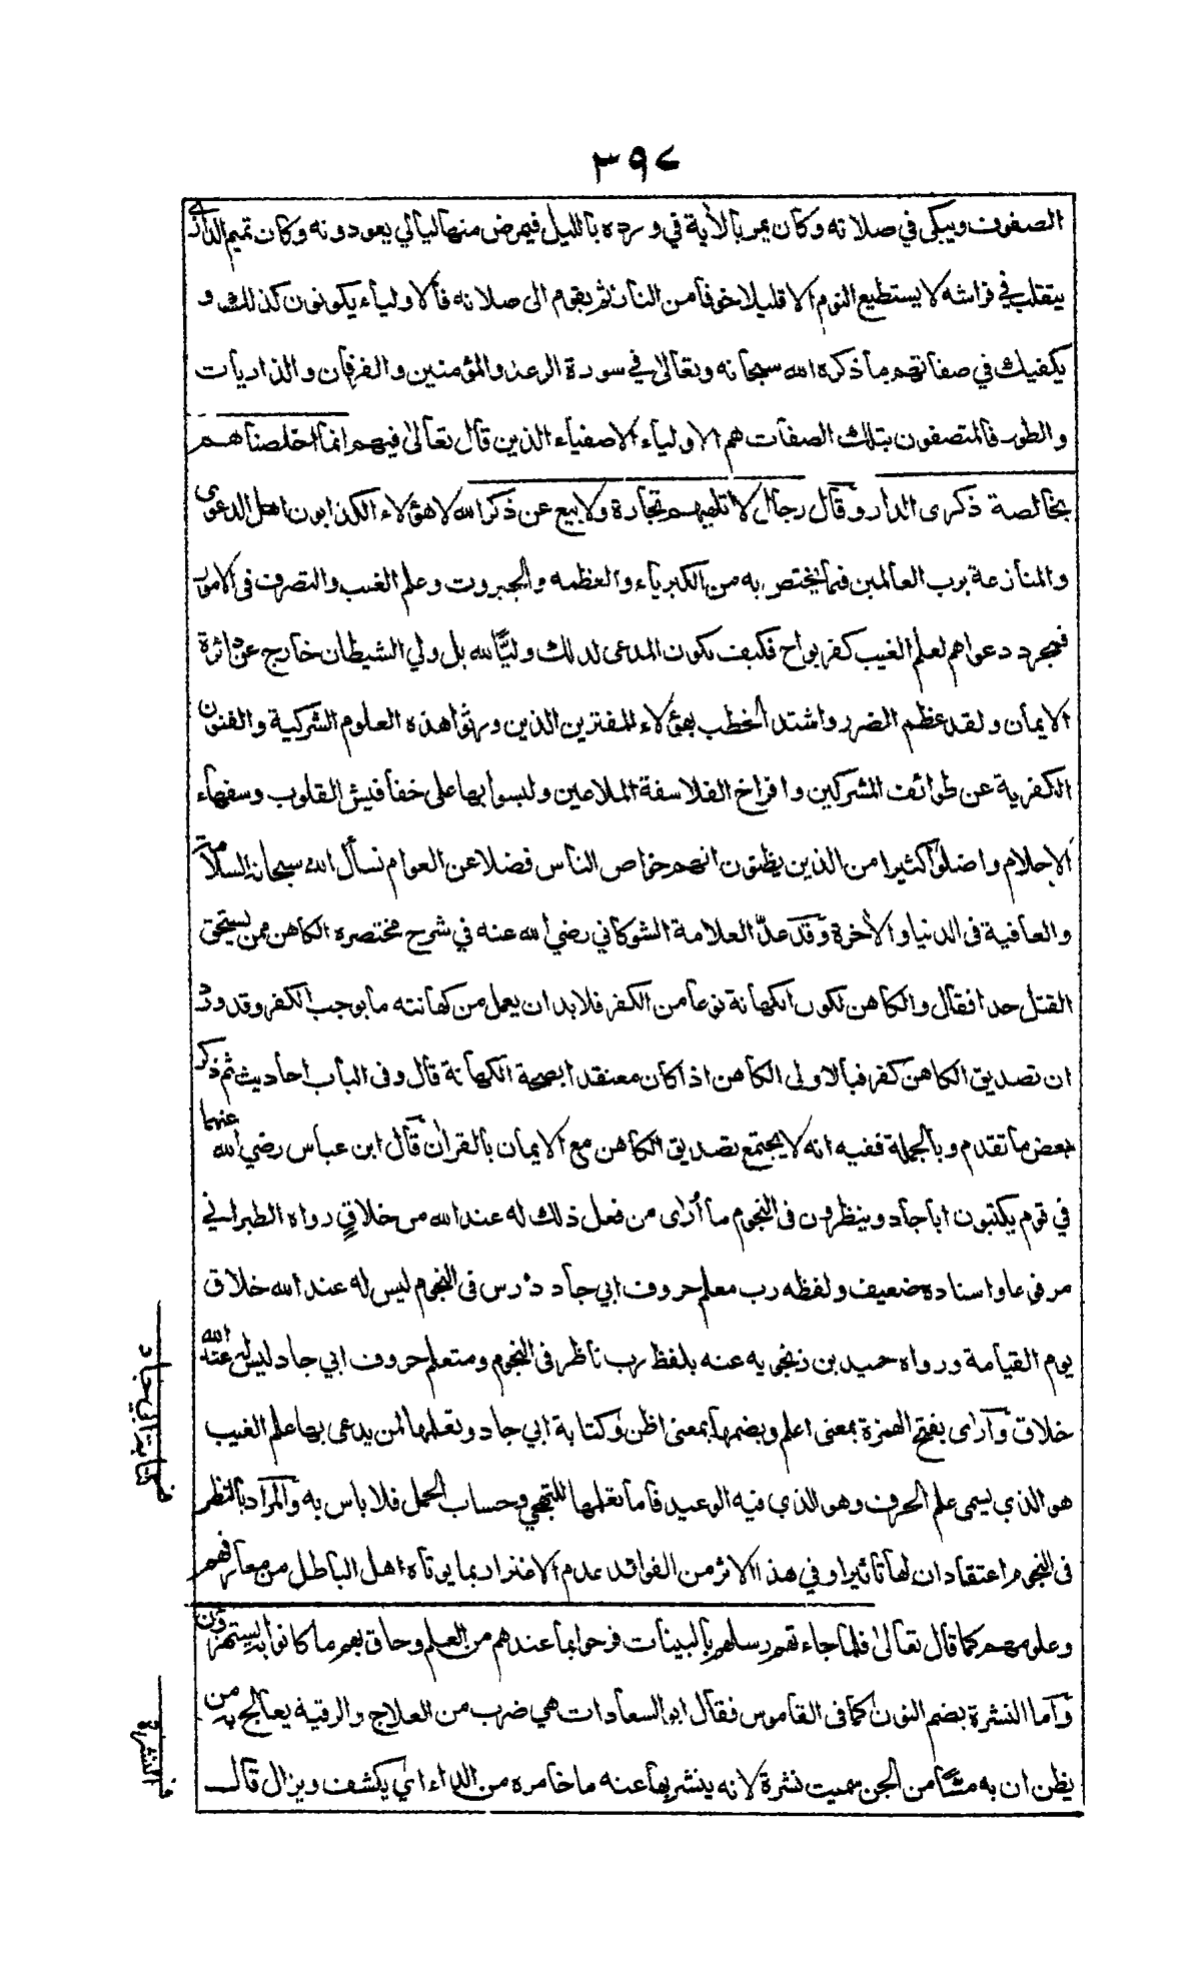 ٣٩٧
الصفوف ويبكى في صلاته وكان يمر بالأية في ورده بالليل فيمرض منها ليالي يعودونه وكان تميم الداري
يتقلب في فراشه لا يستطيع النوم الا قليلا خوفا من النار ثم يقوم الى صلاته فالاولياء يكونون كذلك و
يكفيك في صفاتهم ما ذكره الله سبحانه وتعالى في سورة الرعد والمؤمنين والفرقان والذاريات
والطور فالمتصفون بتلك الصفات هم الاولياء الاصفياء الذين قال تعالى فيهم انما اخلصناهم
بخالصة ذكرى الدار وقال رجال لا تلهيهم تجارة ولا بيع عن ذكر الله لا هؤلاء الكذابون اهل الدعوى
والمنازعة برب العالمين فيما يختص به من الكبرياء والعظمه والجبروت وعلم الغيب والتصرف فى الامور
فمجرد دعواهم لعلم الغيب كفر بواح فكيف يكون المدعى لذلك وليًّا لله بل ولي الشيطان خارج عن دائرة
الايمان ولقد عظم الضرر واشتد الخطب بهؤلاء المفترين الذين ورثوا هذه العلوم الشركية والفنون
الكفرية عن طوائف المشركين وافراخ الفلاسفة الملاعين ولبسوا بها على خفافيش القلوب وسفهاء
الاحلام واضلوا كثيرا من الذين يظنون انهم خواص الناس فضلا عن العوام نسأل الله سبحانه السلامة
والعافية فى الدنيا والأخرة وقد عدّ العلامة الشوكاني رضي الله عنه في شرح مختصره الكاهن ممن يستحق
القتل حدا فقال والكاهن لكون الكهانة نوعا من الكفر فلابد ان يعمل من كهانته ما يوجب الكفر وقد ورد
ان تصديق الكاهن كفر فبالاولى الكاهن اذا كان معتقدا بصحة الكهانة قال وفى الباب احاديث ثم ذكر
بعض ما تقدم وبالجملة ففيه انه لا يجتمع تصديق الكاهن مع الايمان بالقرأن قال ابن عباس رضي الله عنهما
في قوم يكتبون اباجاد وينظرون فى النجوم ما أرى من فعل ذلك له عند الله من خلاقٍ رواه الطبراني
مرفوعا واسناده ضعيف ولفظه رب معلم حروف ابي جاد دارس فى النجوم ليس له عند الله خلاق
يوم القيامة ورواه حميد بن زنجويه عنه بلفظ رب ناظر فى النجوم ومتعلم حروف ابي جاد ليس له عند الله
خلاق وأرى بفتح الهمزة بمعنى اعلم وبضمها بمعنى اظن وكتابة ابي جاد وتعلمها لمن يدعى بها علم الغيب
هو الذي يسمى علم الحرف وهو الذي فيه الوعيد فاما تعلمها للتهجي وحساب الجمل فلا باس به والمراد بالنظر
فى النجوم اعتقاد ان لها تأثيرا وفي هذا الاثر من الفوائد عدم الاغترار بما يوتاه اهل الباطل من معارفهم
وعلومهم كما قال تعالى فلما جاءتهم رسلهم بالبينات فرحوا بما عندهم من العلم وحاق بهم ما كانوا به يستهزؤن
وأما النشرة بضم النون كما فى القاموس فقال ابو السعادات هي ضرب من العلاج والرقية يعالج به من
يظن ان به مسًّا من الجن سميت نشرة لانه ينشر بها عنه ما خامره من الداء اي يكشف ويزال قال
ف كتابة ابي جاد
ف النشرة